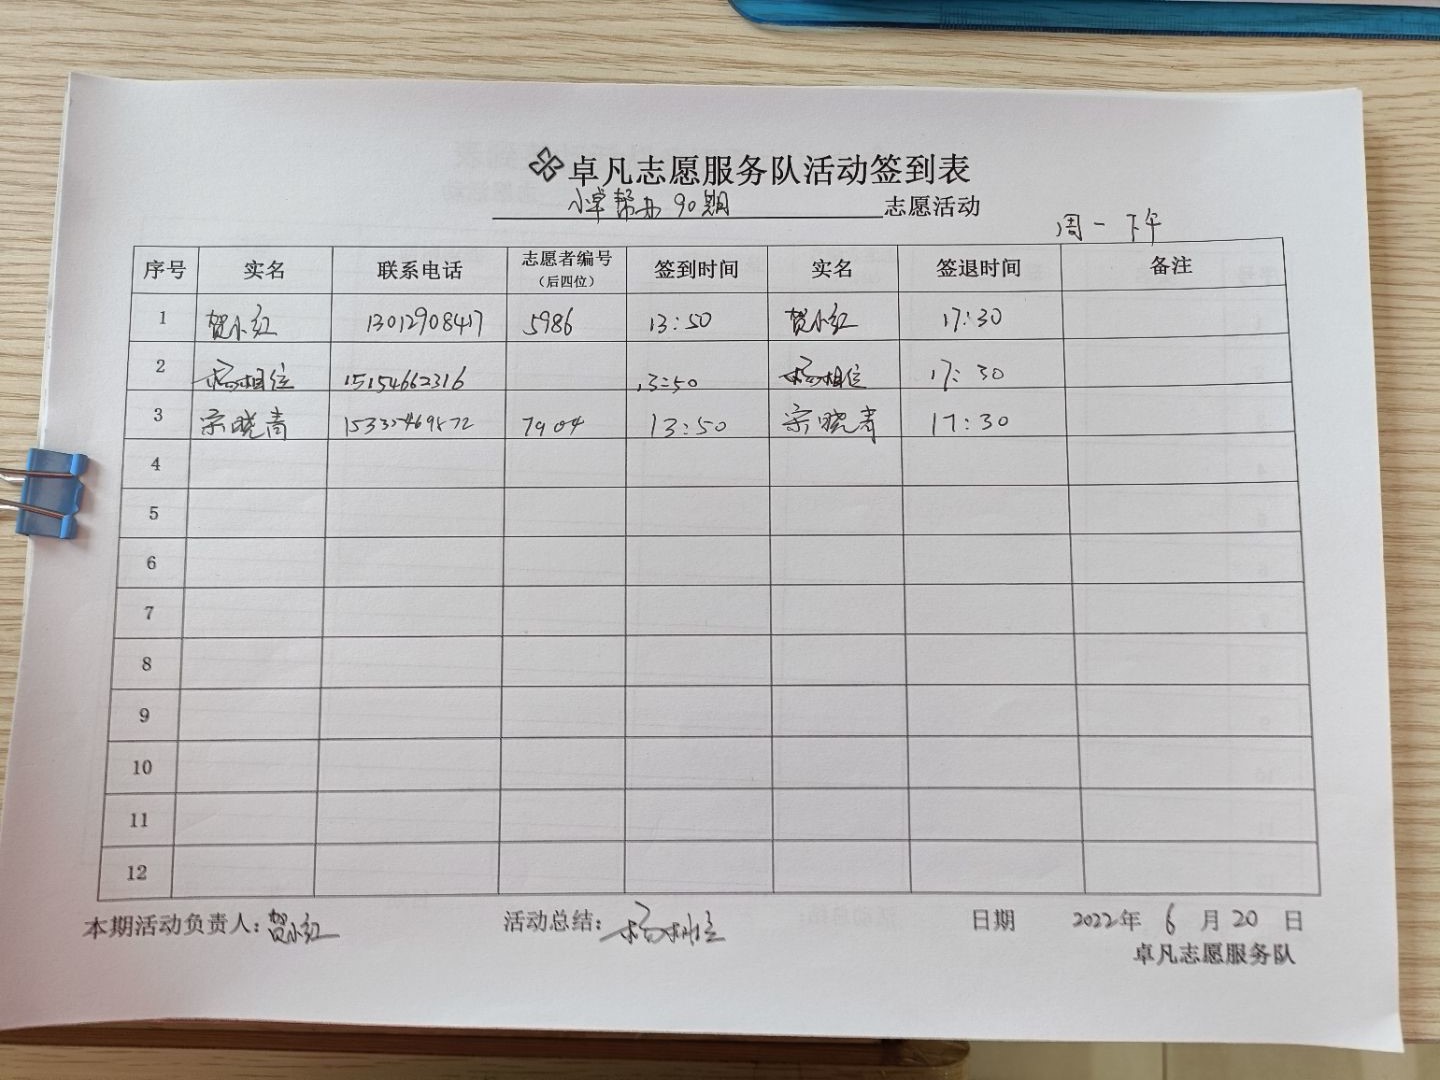 卓凡志愿服务队活动签到表
小卓帮办90期 志愿活动
周一 下午
序号 实名 联系电话 志愿者编号（后四位） 签到时间 实名 签退时间 备注
1 贺小红 13012908417 5986 13:50 贺小红 17:30
2 15154662316 13:50 17:30
3 宗晓青 7904 13:50 宗晓青 17:30
4
5
6
7
8
9
10
11
12
本期活动负责人：贺小红 活动总结： 日期 2022年 6 月 20 日
卓凡志愿服务队